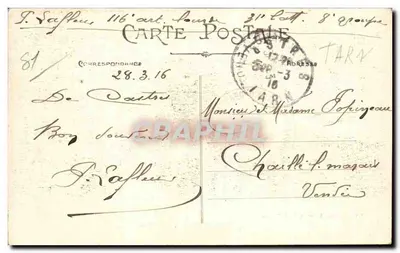 P. Lafleur 116e art. lourde 31e batt 8e groupe
CARTE POSTALE
81
TARN
CORRESPONDANCE
ADRESSE
28.3.16
CASTRES
16
TARN
De Castres
Monsieur et Madame
Bon souvenir
Chaillé l. marais
P. Lafleur
Vendée
CPAPHIL